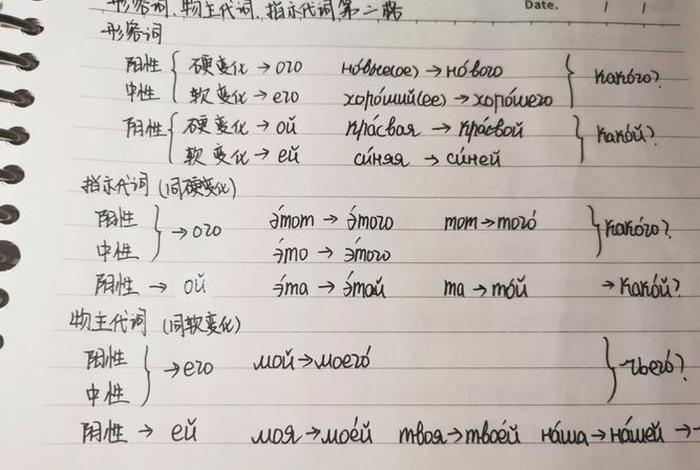 形容词、物主代词、指示代词第二格 Date. / /
形容词
阳性 { 硬变化 → ого но́вые(ое) → но́вого } како́го?
中性 { 软变化 → его хоро́ший(ее) → хоро́шего
阳性 { 硬变化 → ой кра́свая → кра́свой } како́й?
{ 软变化 → ей си́няя → си́ней
指示代词 (同硬变化)
阳性 } → ого э́тот → э́того тот → того́ } како́го?
中性 э́то → э́того
阳性 → ой э́та → э́той та → то́й → како́й?
物主代词 (同软变化)
阳性 } → его мой → моего́ } чьего́?
中性
阳性 → ей моя → мое́й твоя → твое́й на́ша → на́шей →